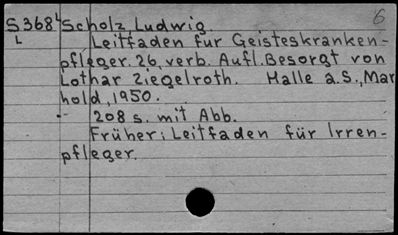 6
S 368 L Scholz Ludwig.
L Leitfaden für Geisteskranken-
pfleger. 26, verb. Aufl. Besorgt von
Lothar Ziegelroth. Halle a.S., Mar
hold, 1950.
208 s. mit Abb.
Früher: Leitfaden für Irren-
pfleger.